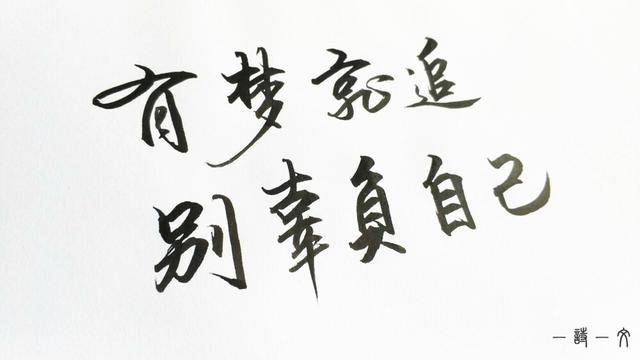 有梦就追
别辜负自己
一詩一文